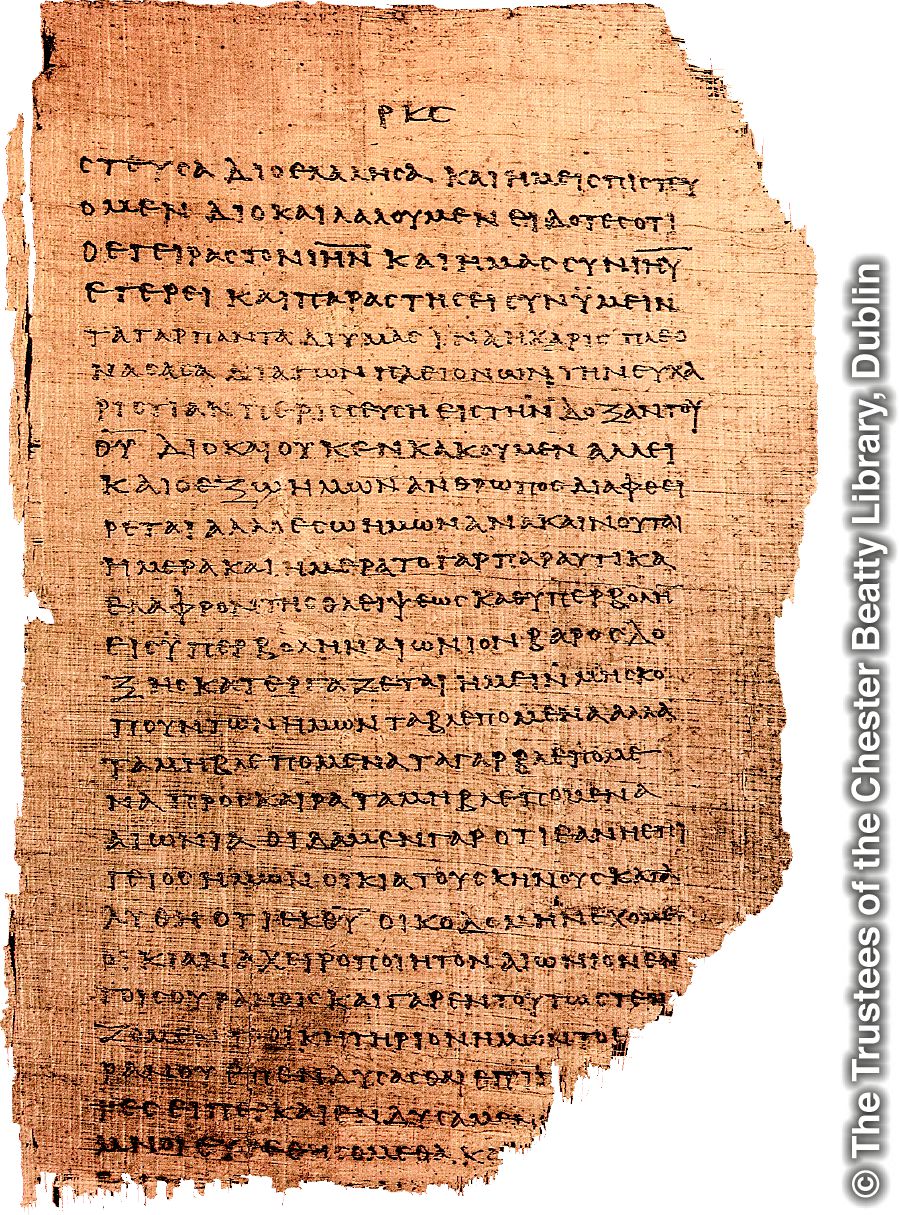 ΡΚϹ
ϹΤΕΥϹΑ ΔΙΟ ΕΛΑΛΗϹΑ ΚΑΙ ΗΜΕΙϹ ΠΙϹΤΕΥ
ΟΜΕΝ ΔΙΟ ΚΑΙ ΛΑΛΟΥΜΕΝ ΕΙΔΟΤΕϹ ΟΤΙ
Ο ΕΓΕΙΡΑϹ ΤΟΝ Ι̅Η̅Ν̅ ΚΑΙ ΗΜΑϹ ϹΥΝ Ι̅Η̅Υ̅
ΕΓΕΡΕΙ ΚΑΙ ΠΑΡΑϹΤΗϹΕΙ ϹΥΝ ΫΜΕΙΝ
ΤΑ ΓΑΡ ΠΑΝΤΑ ΔΙ ΥΜΑϹ ΙΝΑ Η ΧΑΡΙϹ ΠΛΕΟ
ΝΑϹΑϹΑ ΔΙΑ ΤΩΝ ΠΛΕΙΟΝΩΝ ΤΗΝ ΕΥΧΑ
ΡΙϹΤΙΑΝ ΠΕΡΙϹϹΕΥϹΗ ΕΙϹ ΤΗΝ ΔΟΞΑΝ ΤΟΥ
Θ̅Υ̅ ΔΙΟ ΚΑΙ ΟΥΚ ΕΝΚΑΚΟΥΜΕΝ ΑΛΛ ΕΙ
ΚΑΙ Ο ΕΞΩ ΗΜΩΝ ΑΝΘΡΩΠΟϹ ΔΙΑΦΘΕΙ
ΡΕΤΑΙ ΑΛΛ Ο ΕϹΩ ΗΜΩΝ ΑΝΑΚΑΙΝΟΥΤΑΙ
ΗΜΕΡΑ ΚΑΙ ΗΜΕΡΑ ΤΟ ΓΑΡ ΠΑΡΑΥΤΙΚΑ
ΕΛΑΦΡΟΝ ΤΗϹ ΘΛΕΙΨΕΩϹ ΚΑΘ ΥΠΕΡΒΟΛΗ̅
ΕΙϹ ΫΠΕΡΒΟΛΗΝ ΑΙΩΝΙΟΝ ΒΑΡΟϹ ΔΟ
ΞΗϹ ΚΑΤΕΡΓΑΖΕΤΑΙ ΗΜΕΙΝ ΜΗ ϹΚΟ
ΠΟΥΝΤΩΝ ΗΜΩΝ ΤΑ ΒΛΕΠΟΜΕΝΑ ΑΛΛΑ
ΤΑ ΜΗ ΒΛΕΠΟΜΕΝΑ ΤΑ ΓΑΡ ΒΛΕΠΟΜΕ
ΝΑ ΠΡΟϹΚΑΙΡΑ ΤΑ ΜΗ ΒΛΕΠΟΜΕΝΑ
ΑΙΩΝΙΑ ΟΙΔΑΜΕΝ ΓΑΡ ΟΤΙ ΕΑΝ Η ΕΠΙ
ΓΕΙΟϹ ΗΜΩΝ ΟΙΚΙΑ ΤΟΥ ϹΚΗΝΟΥϹ ΚΑΤΑ
ΛΥΘΗ ΟΤΙ ΕΚ Θ̅Υ̅ ΟΙΚΟΔΟΜΗΝ ΕΧΟΜΕ̅
ΟΙΚΙΑΝ ΑΧΕΙΡΟΠΟΙΗΤΟΝ ΑΙΩΝΙΟΝ ΕΝ
ΤΟΙϹ ΟΥΡΑΝΟΙϹ ΚΑΙ ΓΑΡ ΕΝ ΤΟΥΤΩ ϹΤΕΝ
ΖΟΜΕ ΤΟ ΟΙΚΗΤΗΡΙΟΝ ΗΜΩΝ ΤΟ
ΡΑΝΟΥ ΕΠΕΝΔΥϹΑϹΘΑΙ ΕΠΙΠ
ΤΕϹ ΕΙΠΕΡ ΚΑΙ ΕΝΔΥϹΑΜΕΝ
ΜΝΟΙ ΕΥΡΕΘΗϹΟΜΕΘΑ Κ
© The Trustees of the Chester Beatty Library, Dublin